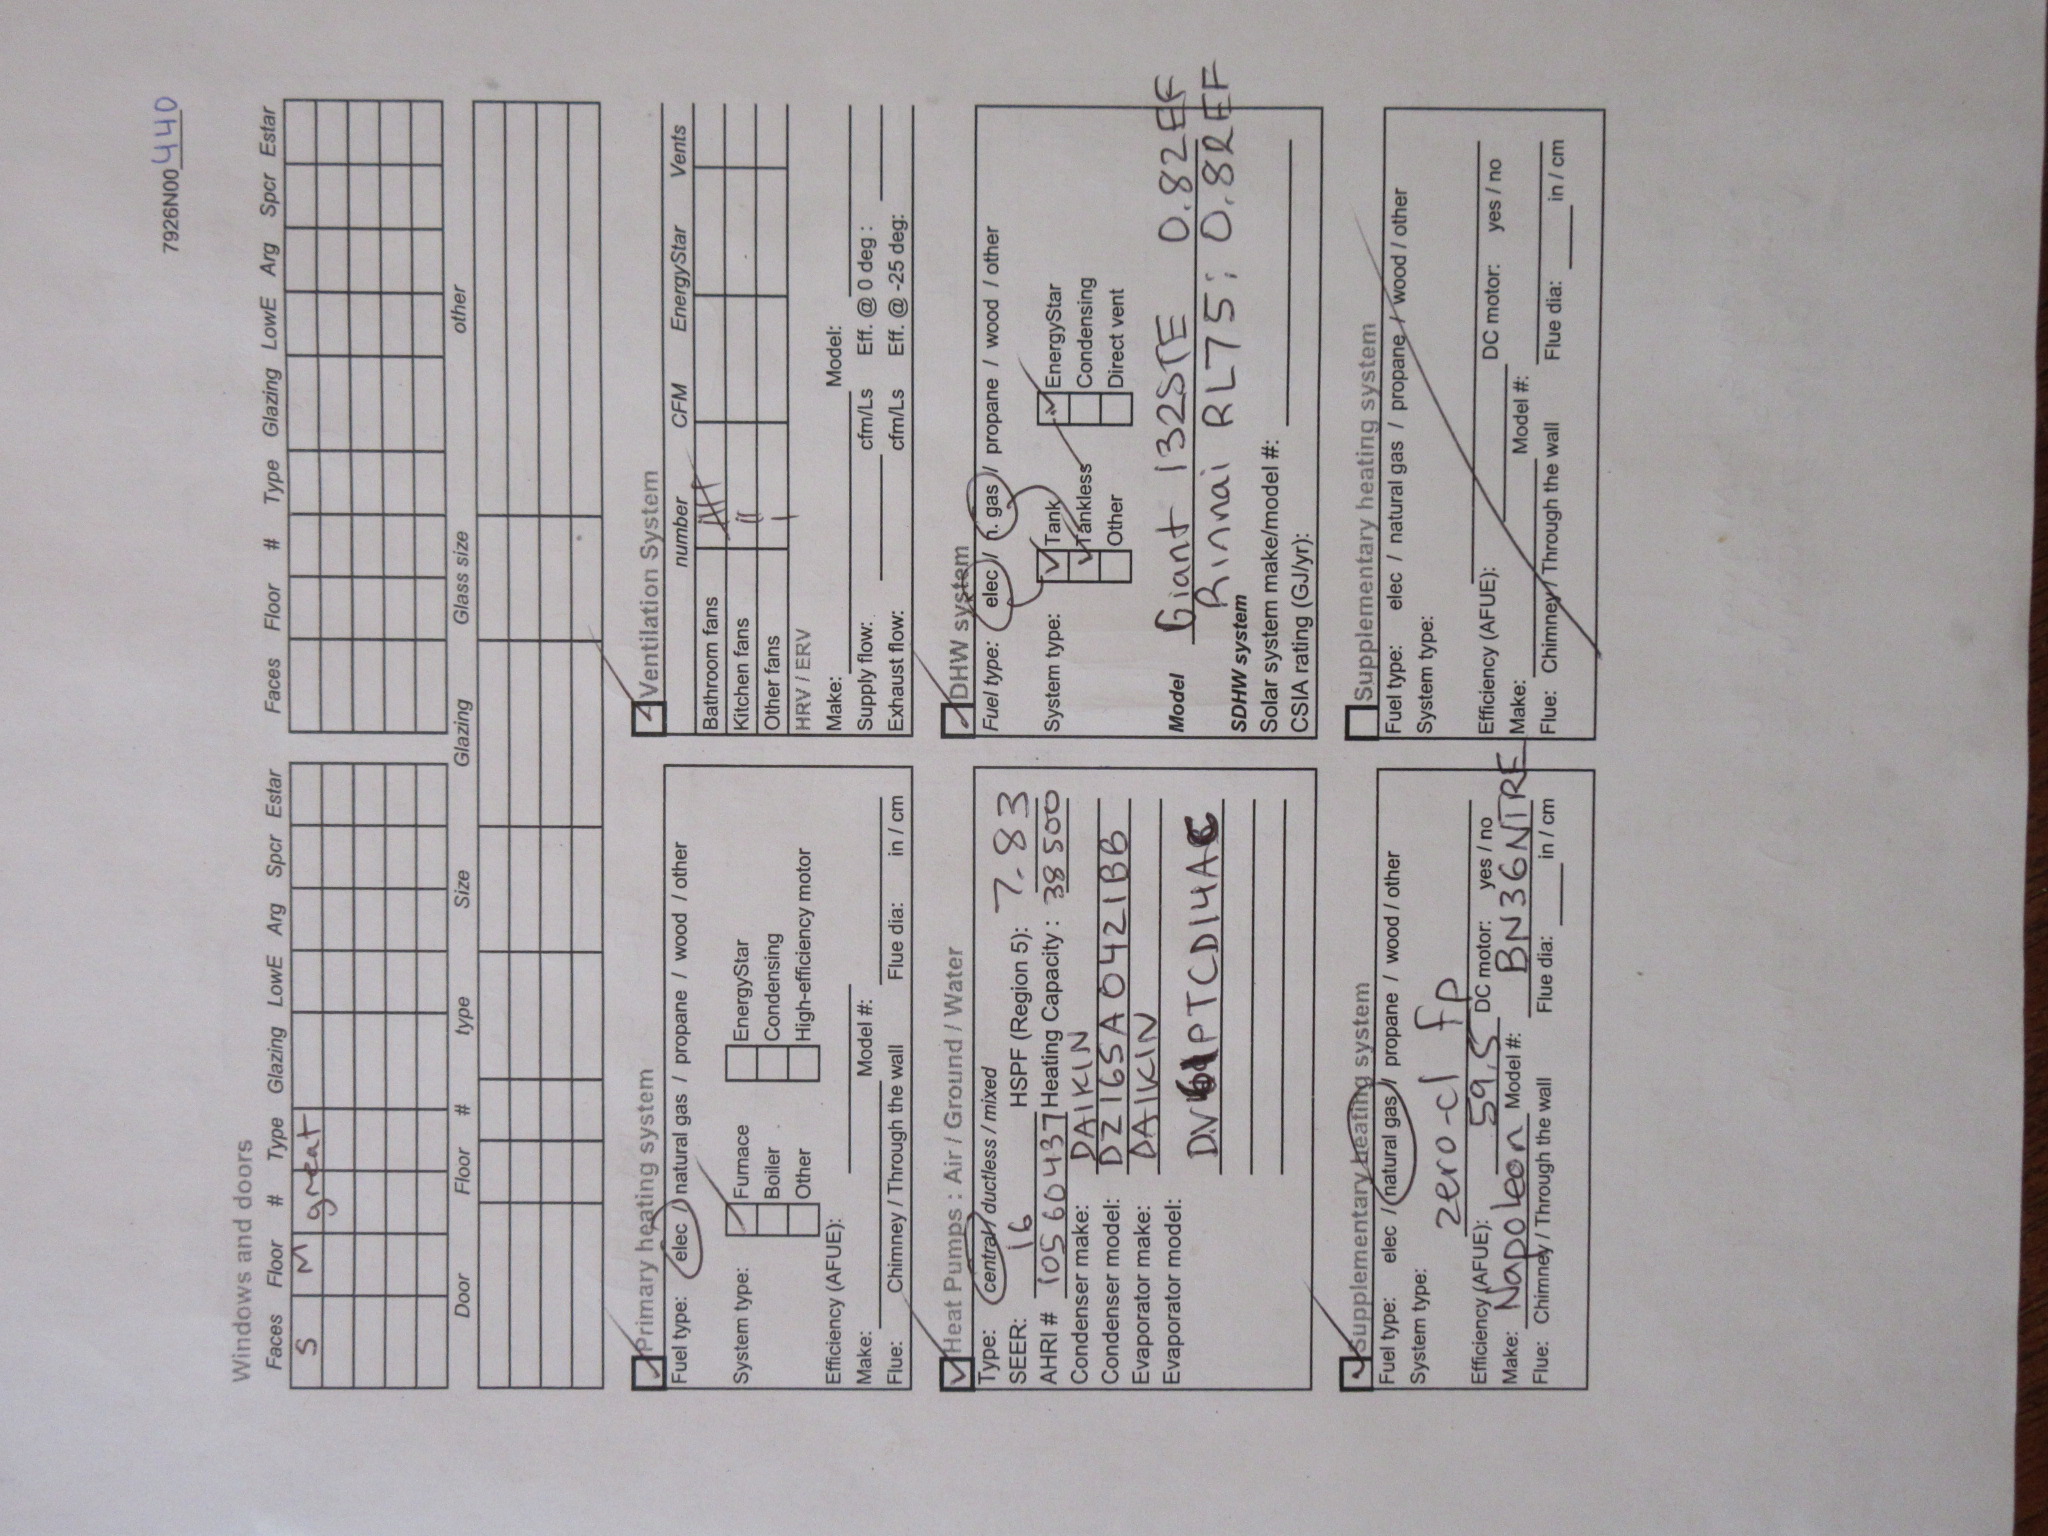 7926N00 440
Windows and doors
Faces Floor # Type Glazing LowE Arg Spcr Estar
S M great
Faces Floor # Type Glazing LowE Arg Spcr Estar
Door Floor # type Size Glazing Glass size other
Primary heating system
Fuel type: elec / natural gas / propane / wood / other
System type: Furnace EnergyStar
Boiler Condensing
Other High-efficiency motor
Efficiency (AFUE):
Make: Model #:
Flue: Chimney / Through the wall Flue dia: in / cm
Ventilation System
number CFM EnergyStar Vents
Bathroom fans
Kitchen fans
Other fans
HRV / ERV
Make: Model:
Supply flow: cfm/Ls Eff. @ 0 deg :
Exhaust flow: cfm/Ls Eff. @ -25 deg:
Heat Pumps : Air / Ground / Water
Type: central / ductless / mixed
SEER: 16 HSPF (Region 5): 7.83
AHRI # 105660437 Heating Capacity : 38500
Condenser make: DAIKIN
Condenser model: DZ16SA0421BB
Evaporator make: DAIKIN
Evaporator model:
DHW system
Fuel type: elec / n. gas / propane / wood / other
System type: Tank EnergyStar
Tankless Condensing
Other Direct vent
Model Giant 132STE 0.82EF
Rinnai RL75i 0.82EF
SDHW system
Solar system make/model #:
CSIA rating (GJ/yr):
Supplementary heating system
Fuel type: elec / natural gas / propane / wood / other
System type: zero-cl fp
Efficiency (AFUE): 59.5 DC motor: yes / no
Make: Napoleon Model #: BN36NTRE
Flue: Chimney / Through the wall Flue dia: in / cm
Supplementary heating system
Fuel type: elec / natural gas / propane / wood / other
System type:
Efficiency (AFUE): DC motor: yes / no
Make: Model #:
Flue: Chimney / Through the wall Flue dia: in / cm